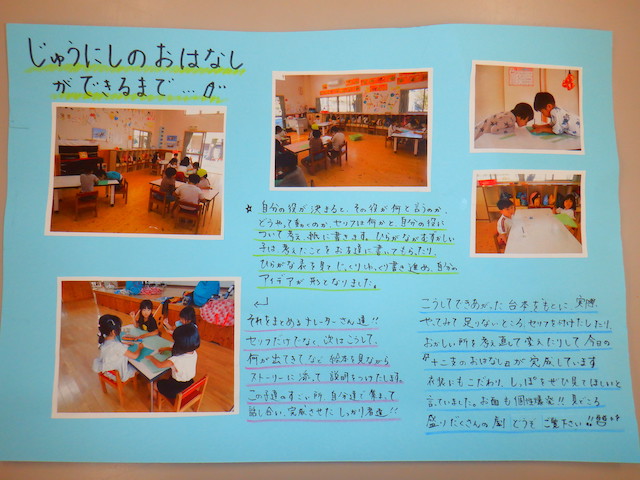 じゅうにしのおはなし
ができるまで…
☆自分の役が決まると、その役が何と言うのか、
どうやって動くのか、セリフは何かと自分の役に
ついて考え、紙に書きます。ひらがながむずかしい
子は考えたことをお友達に書いてもらったり
ひらがな表を見てじっくりゆっくり書き進め、自分の
アイデアが形となりました。
それをまとめるナレーターさん達!!
セリフだけでなく次はこうして、
何が出てきてなど絵本を見ながら
ストーリーに沿って説明をつけたします。
この子達のすごい所、自分達で集まって
話し合い、完成させたしっかり者達!!
こうしてできあがった台本をもとに実際
やってみて足りないところ、セリフを付けたしたり、
おかしい所を考え直して変えたりして今日の
『十二支のおはなし』が完成しています
衣装にもこだわり、しっぽをぜひ見てほしいと
言っていました。お面も個性爆発!!見どころ
盛りだくさんの劇どうぞご覧下さい!!